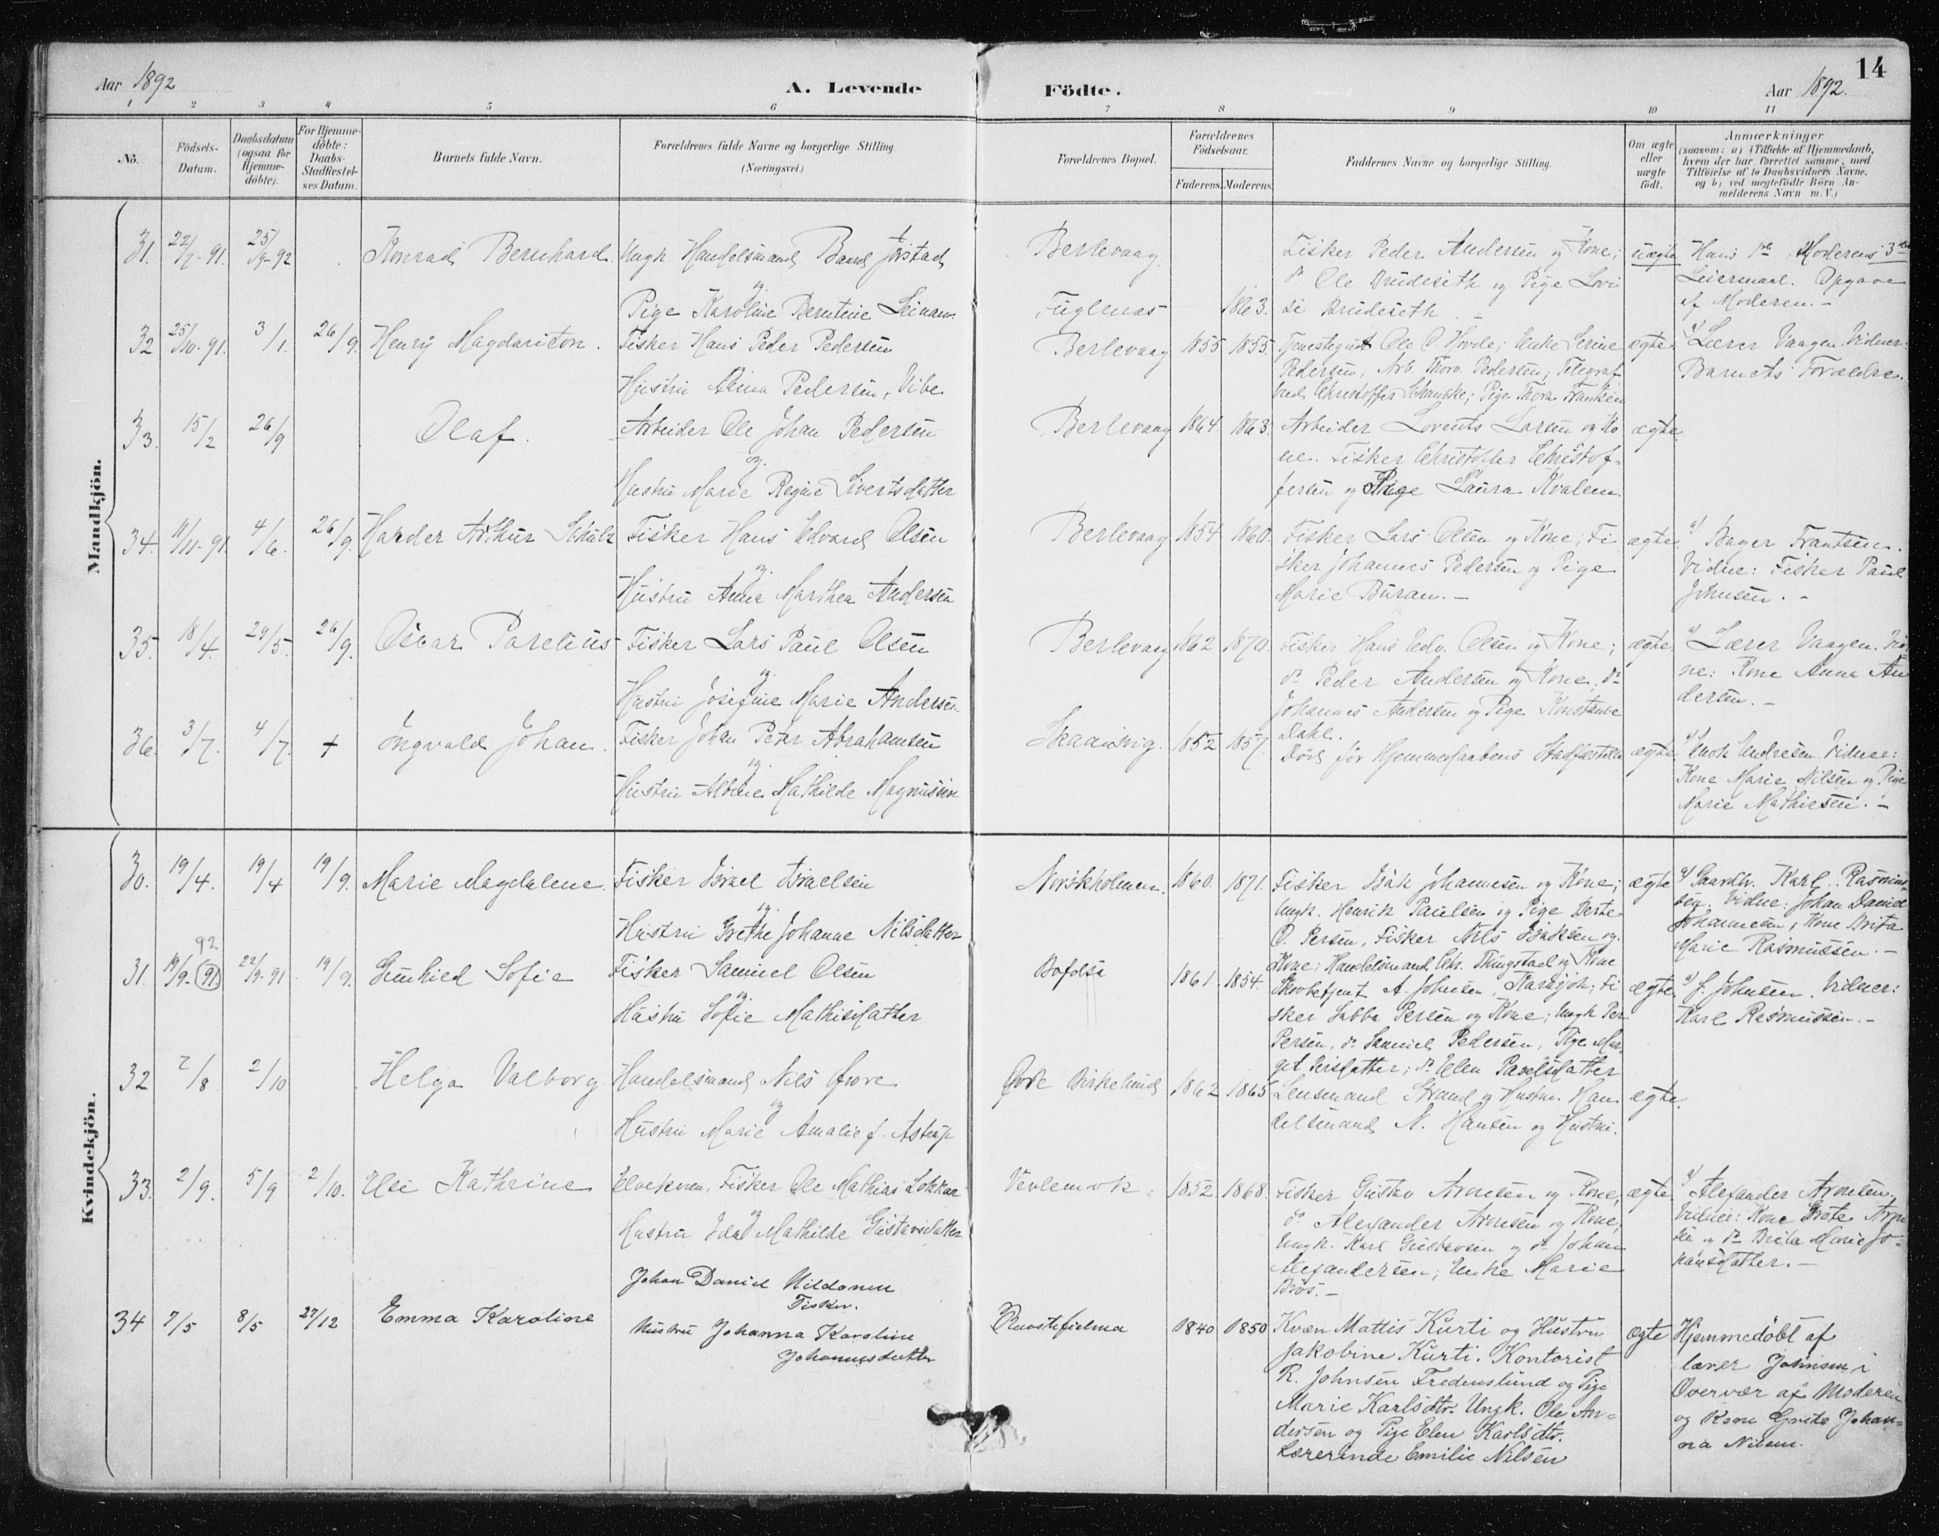 14
Aar 1892
A. Levende Födte.
Aar 1892.
1 2 3 4 5 6 7 8 9 10 11
No.
Födsels-
Datum.
Daabsdatum
(ogsaa for
Hjemme-
döbte).
For Hjemme-
döbte:
Daabs-
Stadfæstel-
ses Datum.
Barnets fulde Navn.
Forældrenes fulde Navne og borgerlige Stilling
(Næringsvei)
Forældrenes Bopæl.
Forældrenes
Födselsaar.
Faderens. Moderens.
Faddernes Navne og borgerlige Stilling.
Om ægte
eller
uægte
födt.
Anmærkninger
(saasom: a) i Tilfælde af Hjemmedaab,
hvem der har forrettet samme, med
Tilföielse af to Daabsvidners Navne,
og b) ved uægtefödte Börn An-
melderens Navn m. V.)
Mandkjön.
31. 22/7-91. 25/9-92 Konrad Bernhard. Ungk Handelsmand Baard Jørstad
og
Pige Karoline Berntine
Berlevaag
Fuglenæs 1863.
Fisker Peder Andersen og Kone;
do Ole Brudeseth og Pige Lovi
se Brudeseth.
uægte
Hans 1ste, Moderens 3die
Leiermaal. Opgave
af Moderen. -
32 25/10-91. 3/1. 26/9. Henry Magdariton. Fisker Hans Peder Pedersen
Hustru Pedersen, Vibe
Berlevaag 1855 1855.
Tjenestegut Ole O. Hovde; Enke
Pedersen, Arb. Thorv. Pedersen; Telegraf
bud Christoffer Schancke; Pige Thora Frantzen
ægte
a) Lærer Vaagen. Vidner:
Barnets Forældre.
33. 15/2 26/9 Olaf. Arbeider Ole Johan Pedersen
og
Hustru Marie Regine Sivertsdatter
Berlevaag 1864. 1863.
Arbeider Lorents Larsen og Ko
ne. Fisker Christoffer Christof-
fersen og Pige Laura Kvalem.
ægte
34. 11/11-91. 4/6. 26/9. Harder Arthur Schulz Fisker Hans Edvard Olsen
og
Hustru Anna Marthea Andersen
Berlevaag 1854 1860.
Fisker Lars Olsen og Kone; Fi
sker Johannes Pedersen og Pige
Marie Buran. -
ægte
a) Bager Frantsen.
Vidne: Fisker Paul
Johnsen. -
35. 18/4. 29/5. 26/9. Oscar Parelius Fisker Lars Paul Olsen
og
Hustru Josefine Marie Andersen.
Berlevaag 1862 1870.
Fisker Hans Edv. Olsen og Kone;
do Peder Andersen og Kone, do
Johannes Andersen og Pige Konstanse
Dahl.
ægte
a) Lærer Vaagen. Vid
ne: Kone Anna An
dersen. -
36. 3/7. 4/7. + Ingvald Johan. Fisker Johan Peter Abrahamsen
og
Hustru Albine Mathilde Magnussen
Skaanvig. 1852 1857.
Død før Hjemmedaabens Stadfæstelse
ægte.
a) Enok Andresen. Vidner:
Kone Marie Nilsen og Pige
Marie Mathiesen. -
Kvindekjön.
30. 19/4. 19/4 19/9. Marie Magdalene. Fisker Israel Israelsen
og
Hustru Grethe Johanne Nilsdatter
Norskholmen. 1860. 1871.
Fisker Isak Johannesen og Kone;
Ungk. Henrik Paulsen og Pige Berte
O. Persen, Fisker Nils Isaksen og
Kone; Handelsmand Chr. Thingstad og Kone
ægte
a) Gaardbr. Karl Rasmus-
sen. Vidne: Johan Daniel
Johannesen, Kone Brita
Marie Rasmussen. -
92
31. 19/9-(91) 22/9-91 19/9. Gunhild Sofie Fisker Samuel Olsen
og
Hustru Sofie Mathisdatter
1861 1854.
Skovbetjent A. Johnsen, Karasjok; Fi
sker Sabba Persen og Kone; Ungk Per
Persen, do Samuel Pedersen, Pige Mar-
get Nirsdatter; do Elen Poulsdatter
ægte
a) J. Johnsen. Vidner:
Karl Rasmussen. -
32 2/8 2/10 Helga Valborg Handelsmand Nils Øwre
og
Hustru Marie Amalie f. Astrup
Birkelund 1862 1865
Lensmand Strand og Hustru. Han
delsmand N. Hansen og Hustru.
ægte.
33. 2/9. 5/9 2/10. Kathrine Fisker Ole Mathias Lokkar
og
Hustru Ida Mathilde Gustavsdatter
1852 1868.
Fisker Gustav Aronsen og Kone,
do Alexander Aronsen og Kone,
Ungk. Karl Gustavsen og do Johan
Alexandersen; Enke Marie
ægte
a) Alexander Aronsen.
Vidner: Kone Grete Aron
sen, do Brita Marie Jo-
hansdatter. -
34 7/5 8/5 27/12 Emma Karoline Johan Daniel Uildonen
Fisker.
Hustru Johanna Karoline
Johannesdatter
Ruostefielma 1840 1850
Kvæn Mattis Kurti og Hustru
Jakobine Kurti. Kontorist
R. Johnsen Fredenslund og Pige
Marie Karlsdtr. Ungk. Ole An-
dersen og Pige Elen Karlsdtr.
Lærerinde Emilie Nilsen
ægte
Hjemmedöbt af
lærer Johnsen i
Overvær af Moderen
og Kone Grete Johan-
na Nilsen.